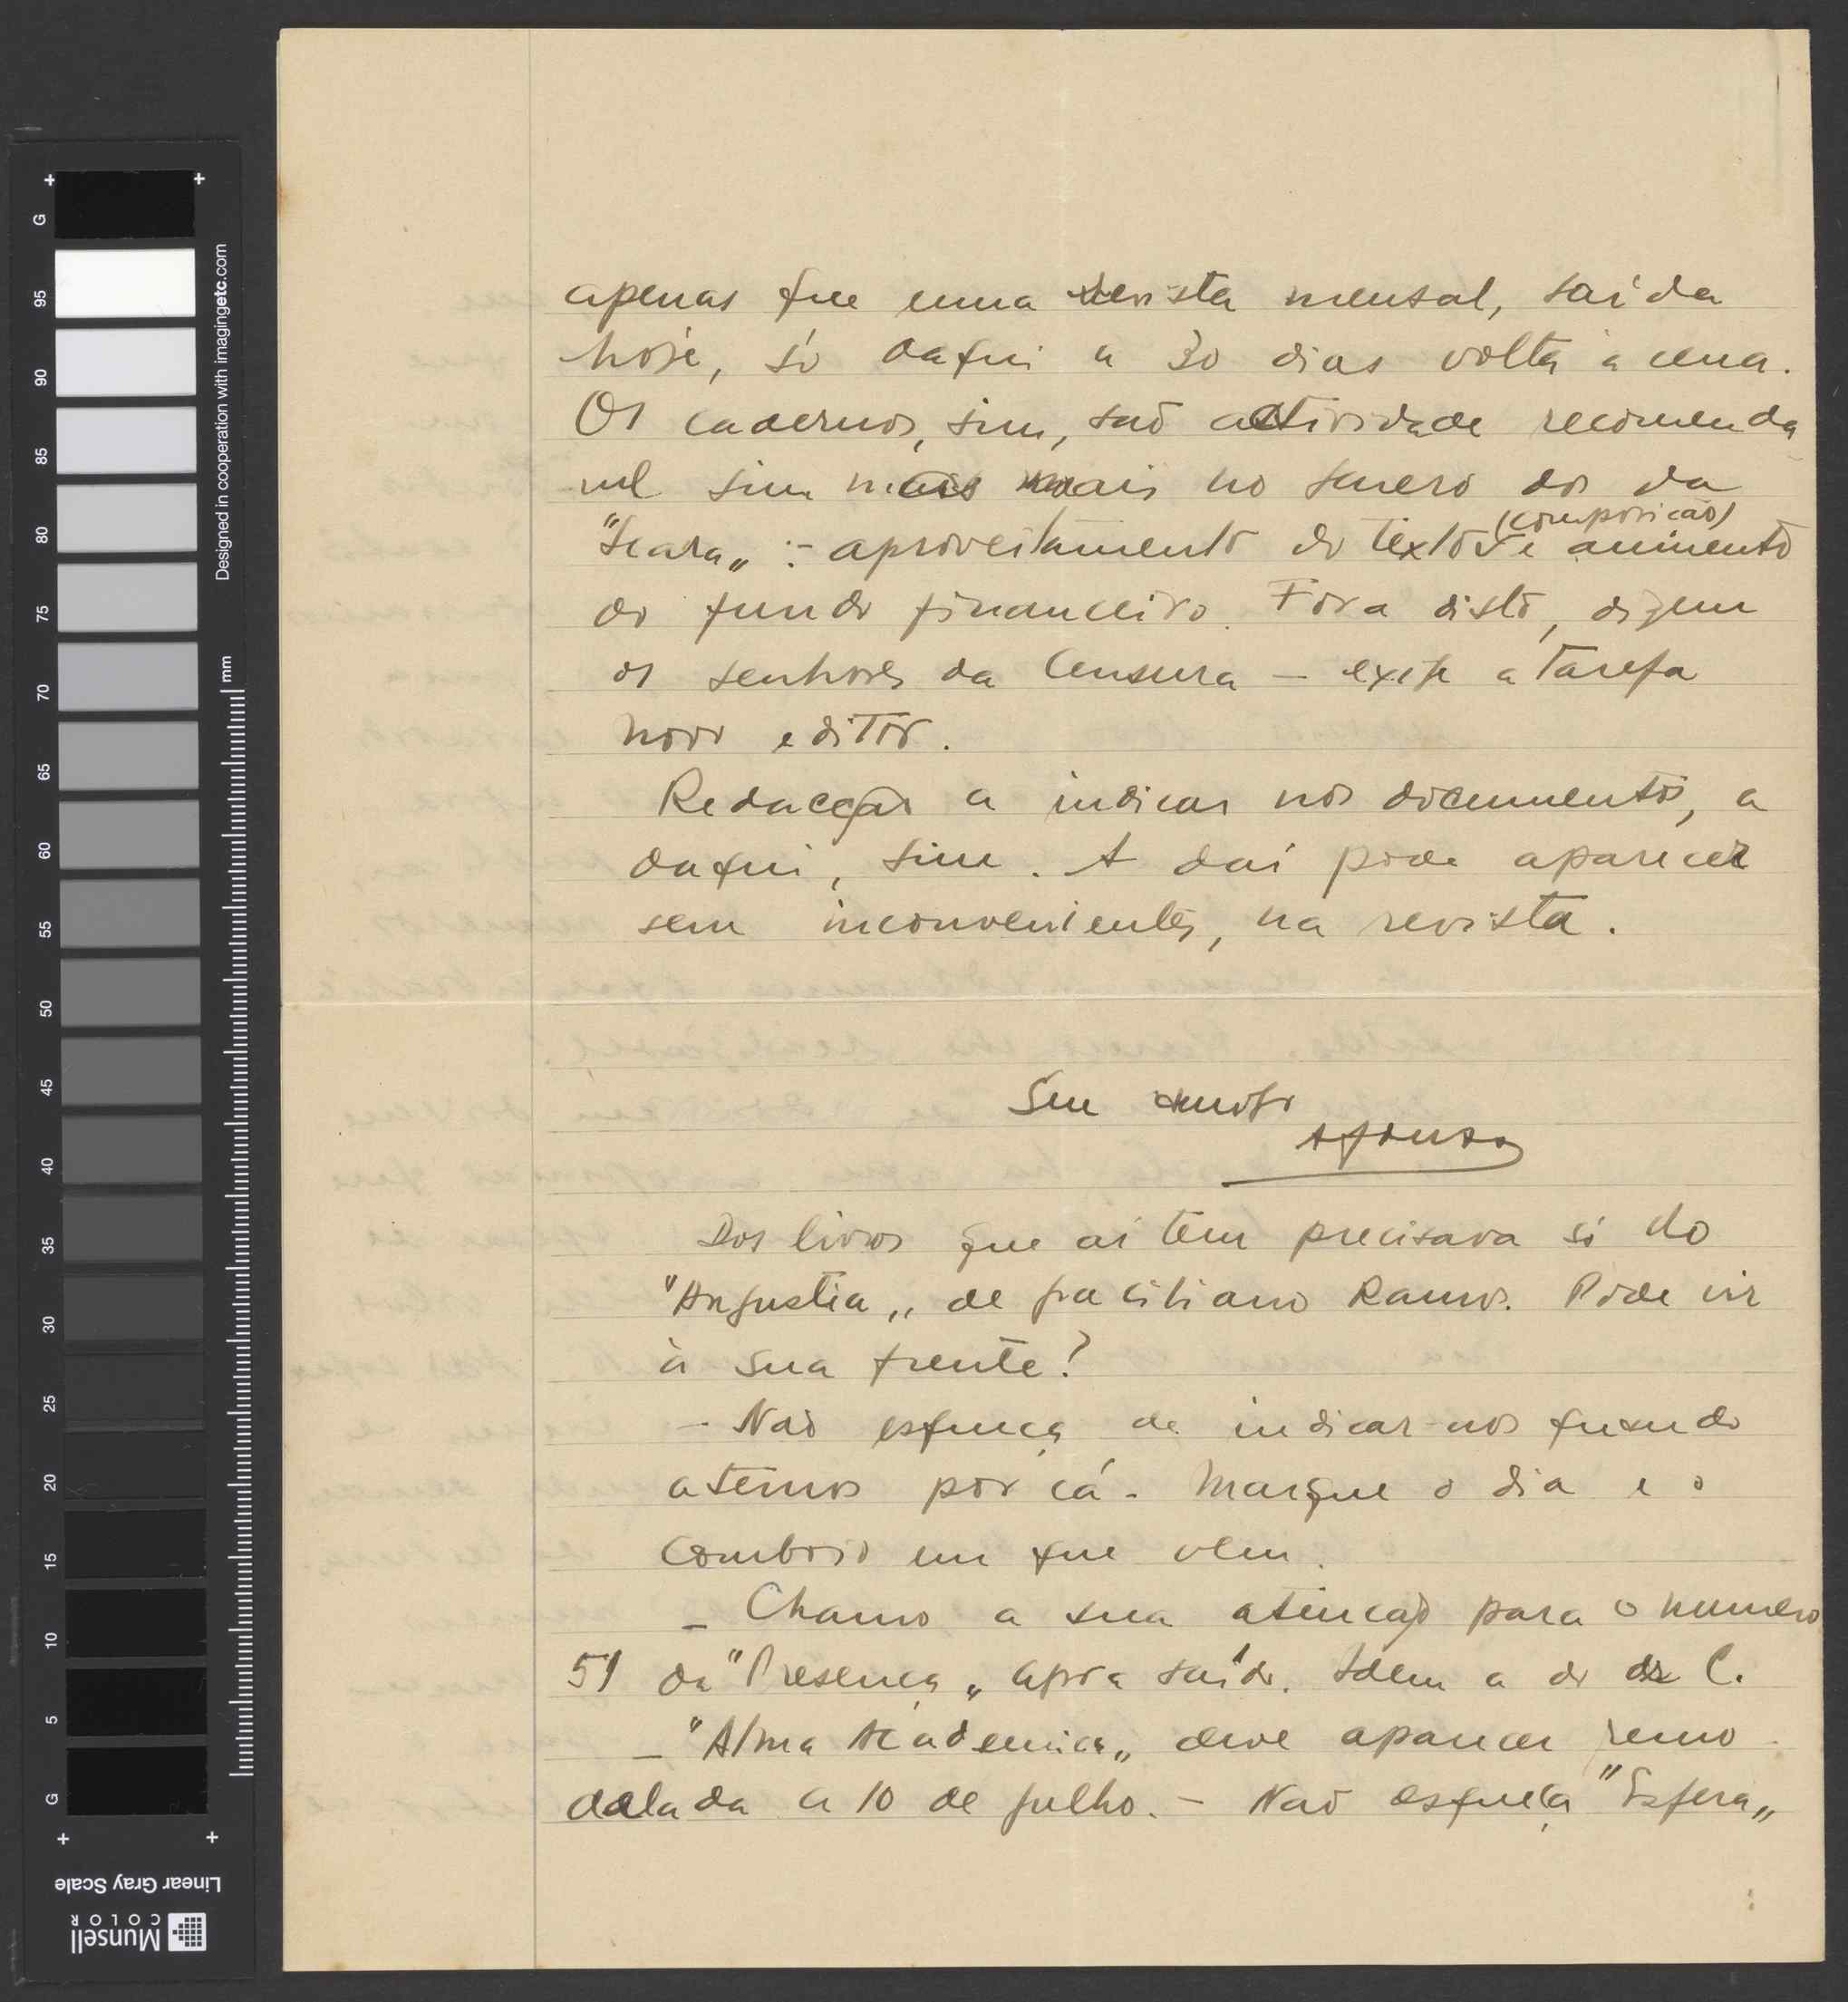 apenas que uma revista mensal, saída
hoje, só daqui a 30 dias volta à cena.
Os cadernos, sim, são actividade recomendá
vel sim mas mais no genero dos da
"Seara„ :- aproveitamento do texto (composição) e aumento
do fundo financeiro. Fora disto, dizem
os senhores da Censura — exige a tarefa
novo editor.
Redacção a indicar nos documentos, a
daqui, sim. A daí pode aparecer
sem inconvenientes, na revista.
Seu amigo
Afonso
Dos livros que aí tem precisava só do
"Angustia„ de Graciliano Ramos. Pode vir
à sua frente?
— Não esqueça de indicar-nos quando
a temos por cá. Marque o dia e o
comboio em que vem.
— Chamo a sua atenção para o numero
51 da "Presença„ agora saído. Idem a do dr C.
— "Alma Academica„ deve aparecer remo
delada a 10 de julho. — Não esqueça "Esfera„
G
95
90
85
80
75
70
65
60
55
50
45
40
35
30
25
20
15
10
5
G
mm
Designed in cooperation with imagingetc.com
Linear Gray Scale
Munsell
COLOR